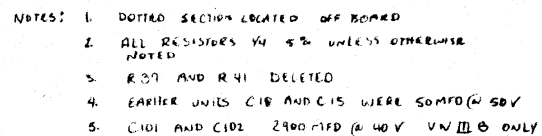 NOTES: 1. DOTTED SECTION LOCATED OFF BOARD
2. ALL RESISTORS 1/4 5% UNLESS OTHERWISE
NOTED
3. R39 AND R41 DELETED
4. EARLIER UNITS C18 AND C15 WERE 50MFD @ 50V
5. C101 AND C102 2900 MFD @ 40V VNIIIB ONLY